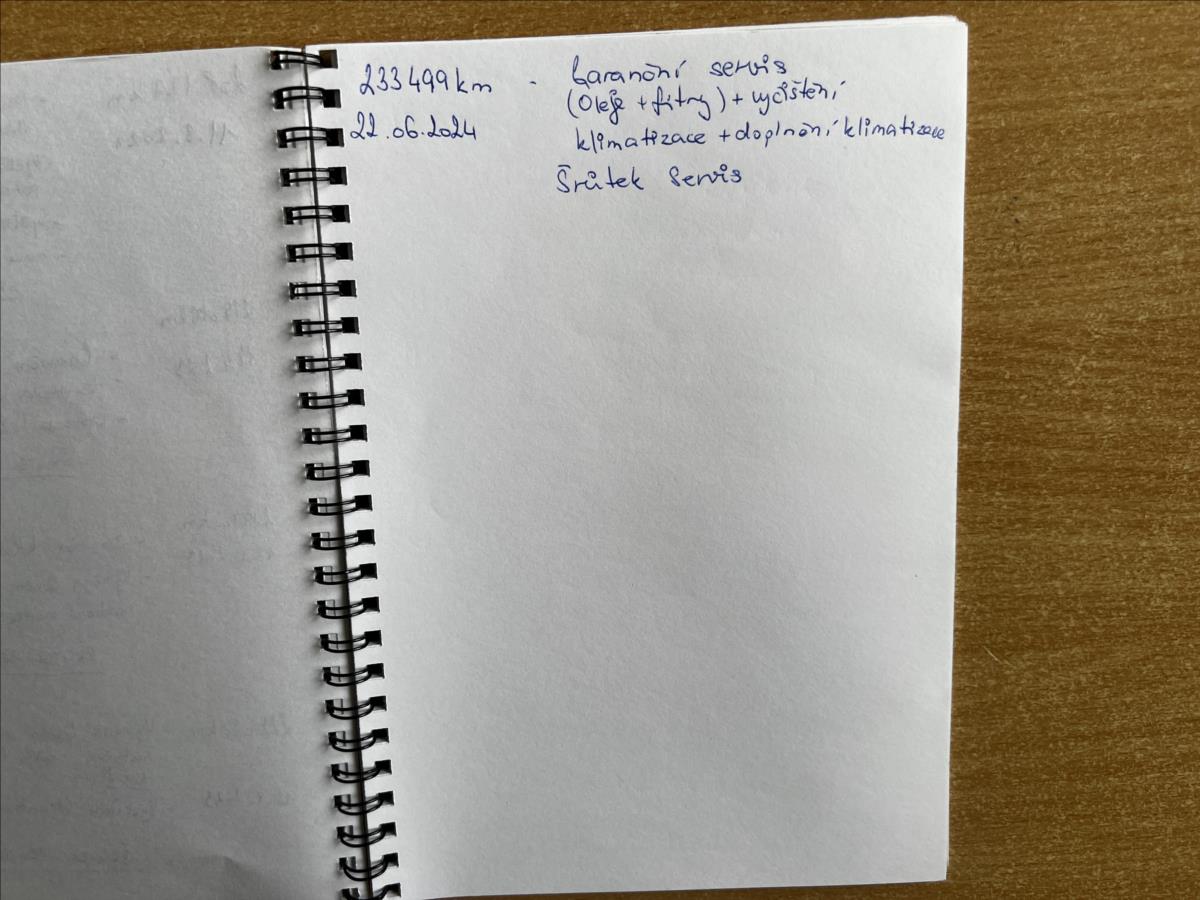 233499km - Garanční servis
(oleje + filtry) + vyčištění
22.06.2024 klimatizace + doplnění klimatizace
Šrůtek Servis